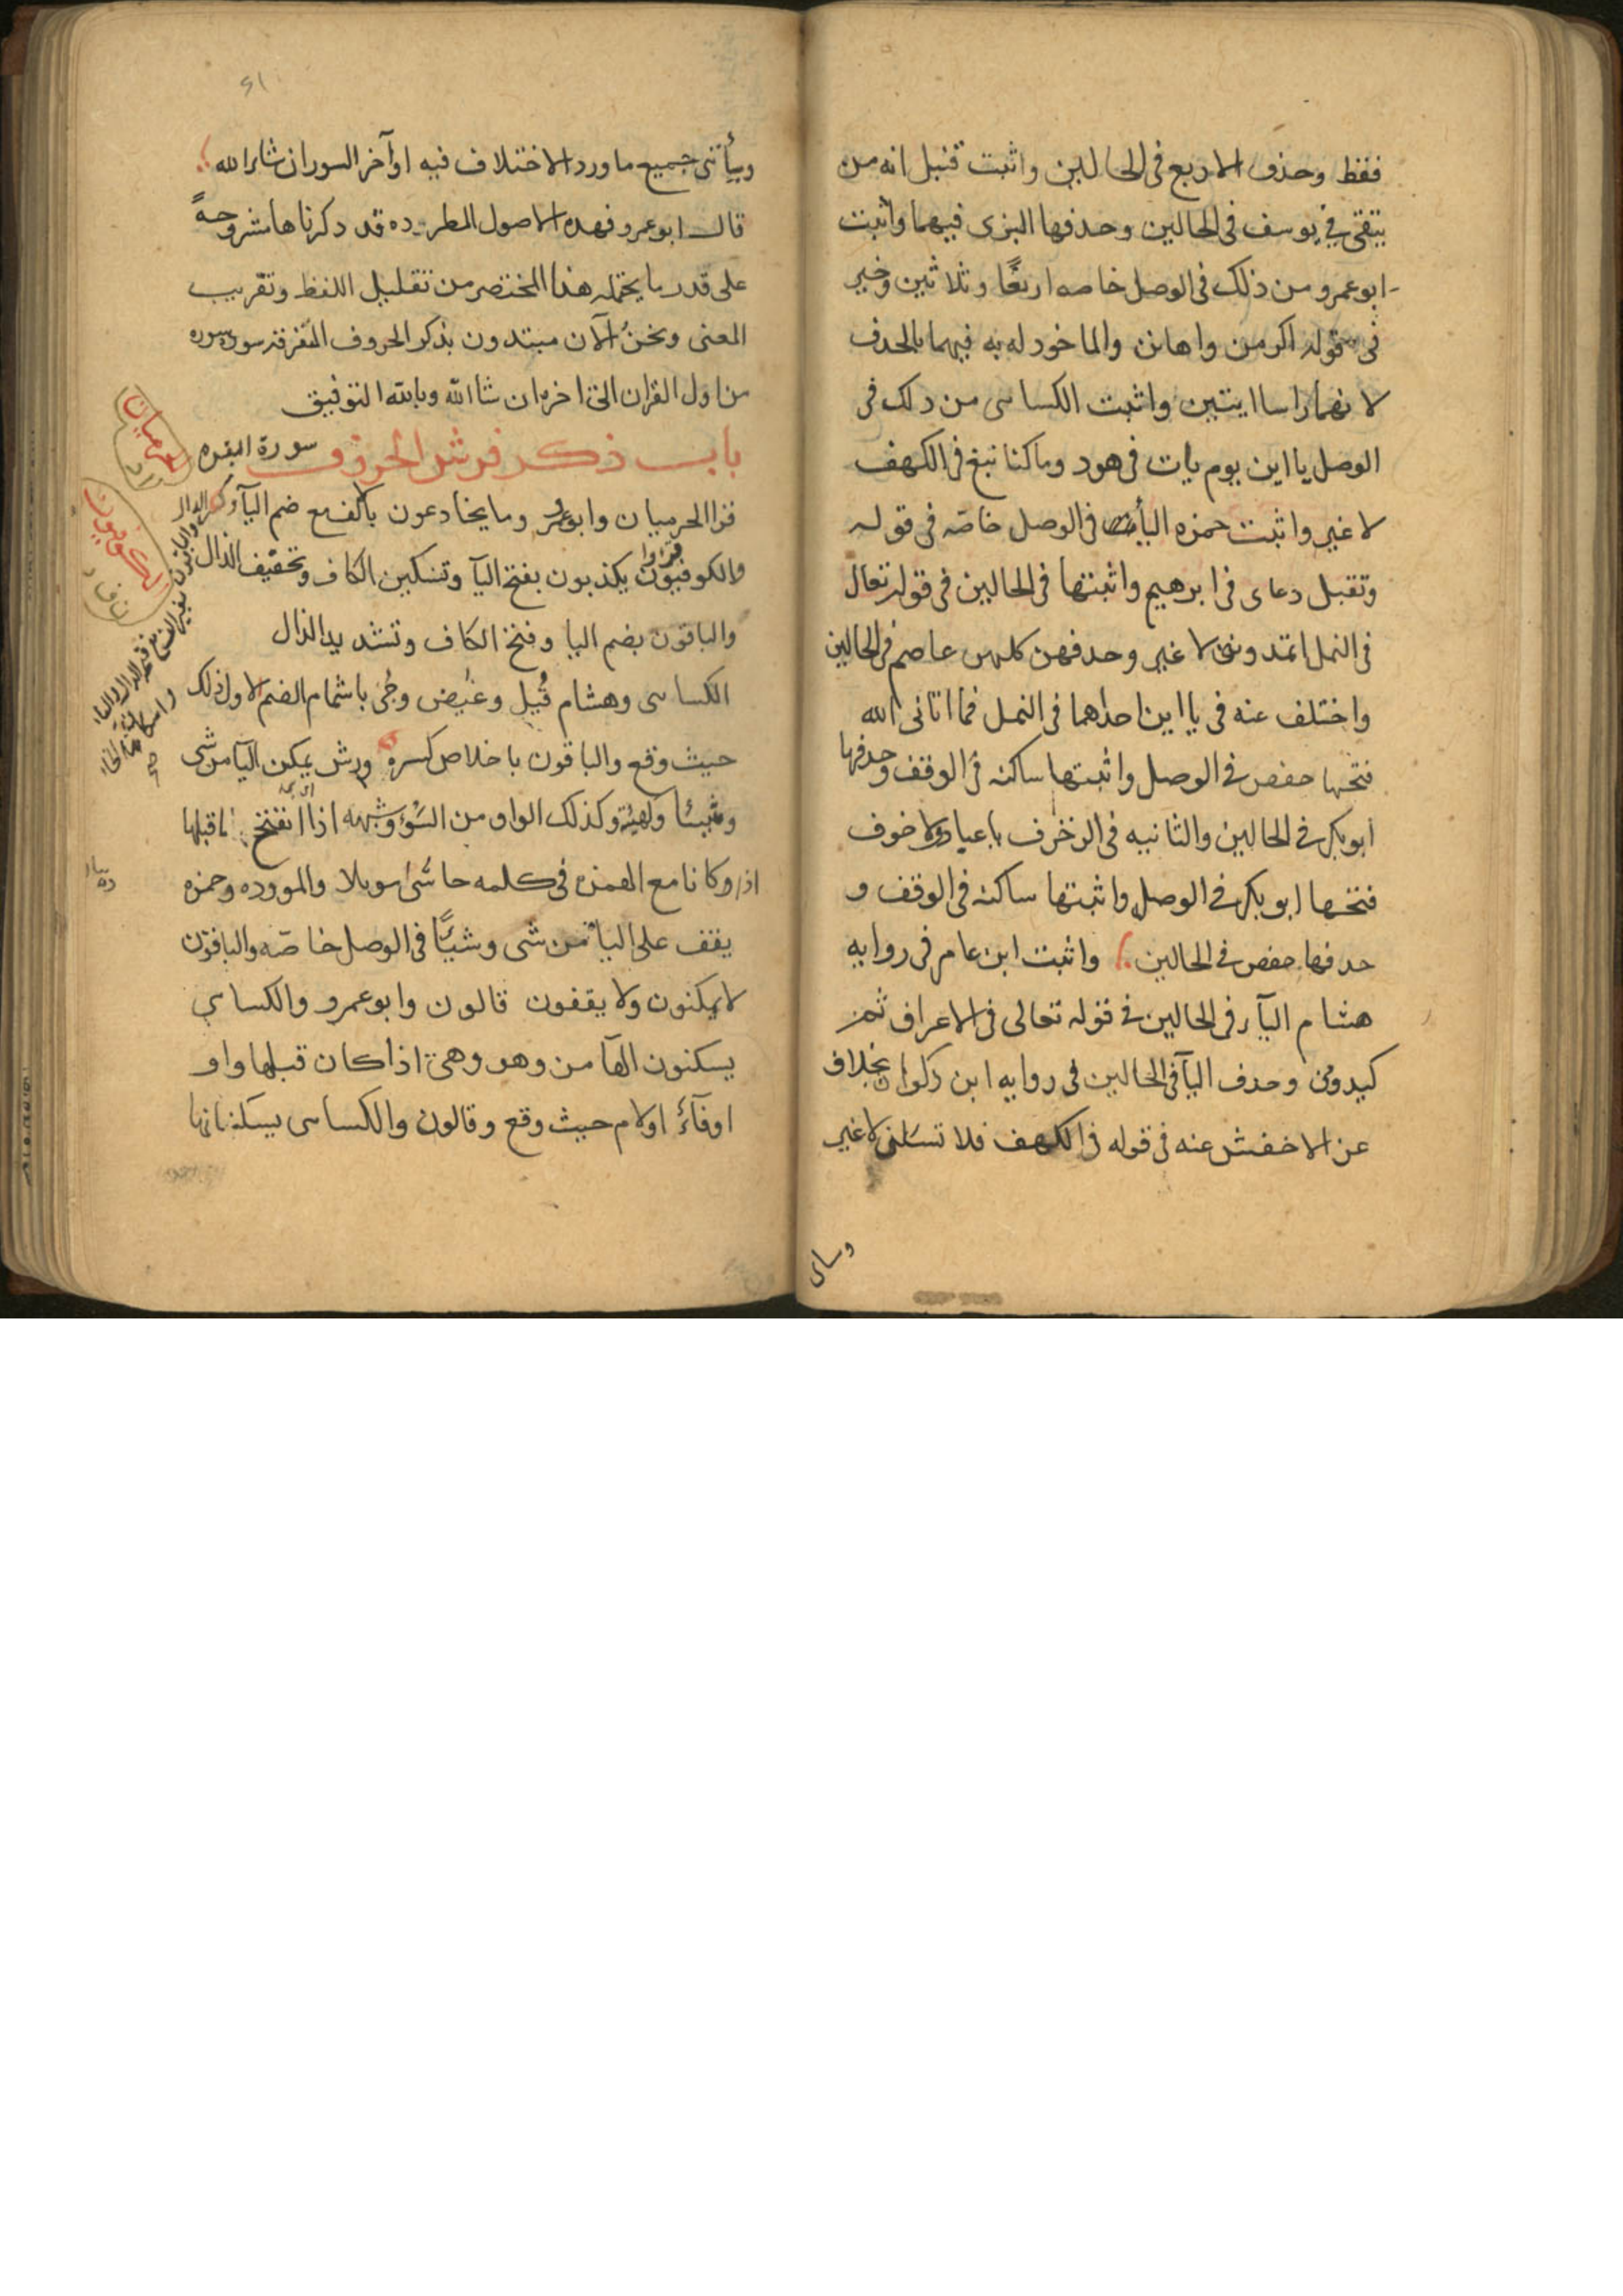 فقط وحذف الاربع فى الحالين واثبت قنبل انه من
يتقى فى يوسف فى الحالين وحذفها البزى فيهما واثبت
ابو عمرو من ذلك فى الوصل خاصه اربعًا وثلاثين وخير
فى قوله اكرمن واهانن والماخود له به فيهما بالحدف
لا نهما راسا ايتين واثبت الكساى من دلك فى
الوصل يا اين يوم يات فى هود وما كنا نبغ فى الكهف
لا غير واثبت حمزه اليا فى الوصل خاصّه فى قوله
وتقبل دعاى فى ابرهيم واثبتها فى الحالين فى قوله تعالى
فى النمل اتمدونن لا غير وحدفهن كلهن عاصم فى الحالين
واختلف عنه فى يا اين احداهما فى النمل فما اتانى الله
فتحها حفص فى الوصل واثبتها ساكنه فى الوقف وحدفها
ابو بكر فى الحالين والثانيه فى الزخرف يا عباد لا خوف
فتحها ابو بكر فى الوصل واثبتها ساكنه فى الوقف و
حدفها حفص فى الحالين واثبت ابن عامر فى روايه
هشام اليآء فى الحالين فى قوله تعالى فى الاعراف ثم
كيدونى وحدف اليآ فى الحالين فى روايه ابن دكوان بخلاف
عن الاخفش عنه فى قوله فى الكهف فلا تسالنى لا غير
وساى
٦١
وسيأتى جميع ما ورد الاختلاف فيه اوآخر السور ان شاء الله
قال ابو عمرو فهده الاصول المطرده قد دكرناها مشروحهً
على قدر ما يحتمله هذا المختصر من تقليل اللفظ وتقريب
المعنى ونحنُ الآن مبتدون بذكر الحروف المتفرقه سوره سوره
من اول القران الى اخره ان شا الله وبالله التوفيق
باب ذكر فرش الحروف سورة البقره
قرا الحرميان وابو عمرو وما يخادعون بالف مع ضم اليآ وكسر الدال
والكوفيون قراوا يكذبون بفتح اليآ وتسكين الكاف وتخفيف الذال
والباقون بضم اليا وفتح الكاف وتشديد الذال
الكساى وهشام قُيل وغُيض وجُى باشمام الضم لاول ذلك
حيث وقع والباقون باخلاص كسره ورش يمكن اليآ من شى
وشيئا وكهيئة وكذلك الواو من السَّوْء وشبهه اذا انفتح ما قبلها
وكانا مع الهمزه فى كلمه حاشى موىلا والمووده وحمزه
يقف على اليا من شى وشيئًا فى الوصل خاصّه والباقون
لا يمكنون ولا يقفون قالون وابو عمرو والكساى
يسكنون الهآ من وهو وهى اذا كان قبلها واو
اوفآءُ اولام حيث وقع وقالون والكساى يسكنانها
الحرميان
الكوفيون
والباقون بغير الف مع فتح الدال والياء
واسكان الخاء